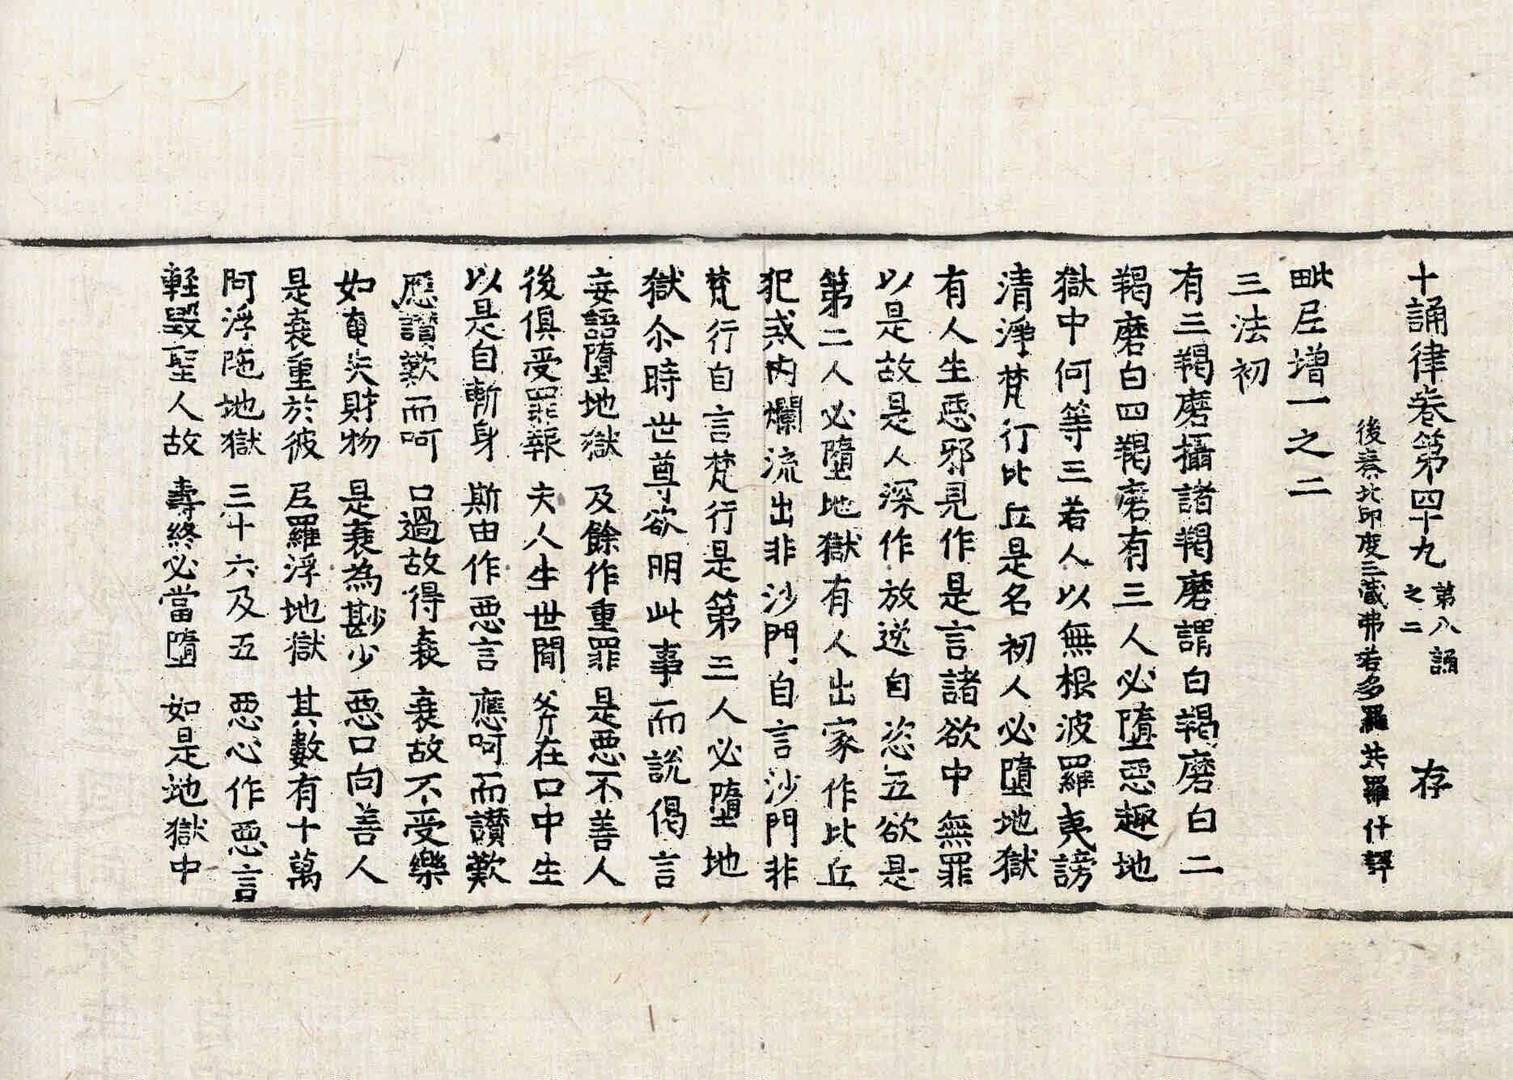 十誦律卷第四十九 第八誦之二 存
後秦北印度三藏弗若多羅共羅什譯
毗尼增一之二
三法初
有三羯磨攝諸羯磨謂白羯磨白二
羯磨白四羯磨有三人必墮惡趣地
獄中何等三若人以無根波羅夷謗
清淨梵行比丘是名初人必墮地獄
有人生惡邪見作是言諸欲中無罪
以是故是人深作放逸自恣五欲是
第二人必墮地獄有人出家作比丘
犯戒內爛流出非沙門自言沙門非
梵行自言梵行是第三人必墮地
獄尒時世尊欲明此事而說偈言
妄語墮地獄 及餘作重罪 是惡不善人
後俱受罪報 夫人生世間 斧在口中生
以是自斬身 斯由作惡言 應呵而讃歎
應讃歎而呵 口過故得衰 衰故不受樂
如奄失財物 是衰為尠少 惡口向善人
是衰重於彼 尼羅浮地獄 其數有十萬
阿浮陁地獄 三十六及五 惡心作惡言
輕毀聖人故 壽終必當墮 如是地獄中